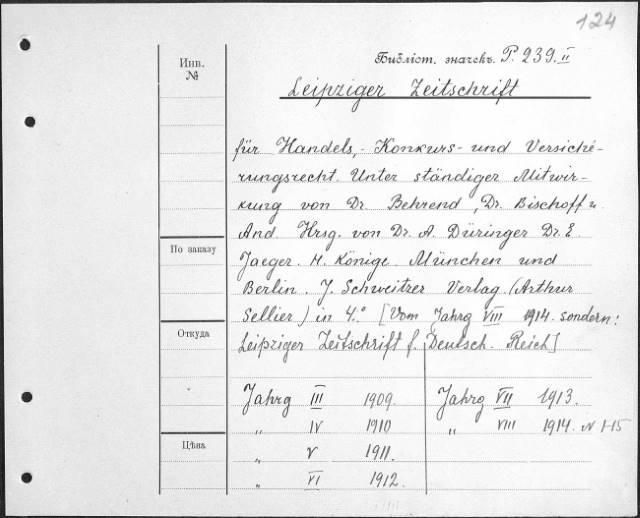 124
Инв.
№
Библіот. значекъ. P. 239. II
Leipziger Zeitschrift
für Handels,- Konkurs- und Versiche-
rungsrecht. Unter ständiger Mitwir-
kung von Dr. Behrend, Dr. Bischoff u.
And. Hrsg. von Dr. A. Düringer Dr. E.
По заказу
Jaeger. H. Könige. München und
Berlin. J. Schweitzer Verlag. (Arthur
Sellier) in 4.° [Vom Jahrg VIII 1914. sondern:
Откуда
Leipziger Zeitschrift f. Deutsch. Reich]
Jahrg III 1909. Jahrg VII 1913.
„ IV 1910 „ VIII 1914. N 1-15
Цѣна
„ V 1911.
„ VI 1912.